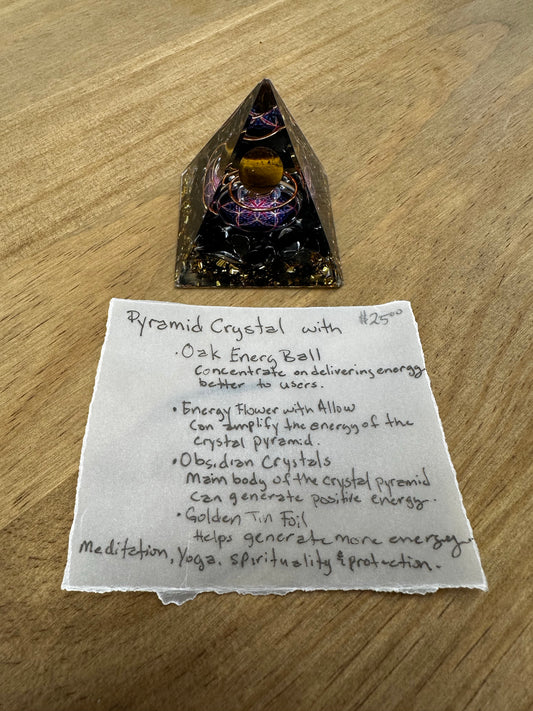 Pyramid Crystal with $25⁰⁰
• Oak Energ Ball
Concentrate on delivering energy
better to users.
• Energy Flower with Allow
can amplify the energy of the
crystal pyramid.
• Obsidian Crystals
Main body of the crystal pyramid
can generate positive energy.
• Golden Tin Foil
Helps generate more energy
Meditation, Yoga, spirituality & protection.